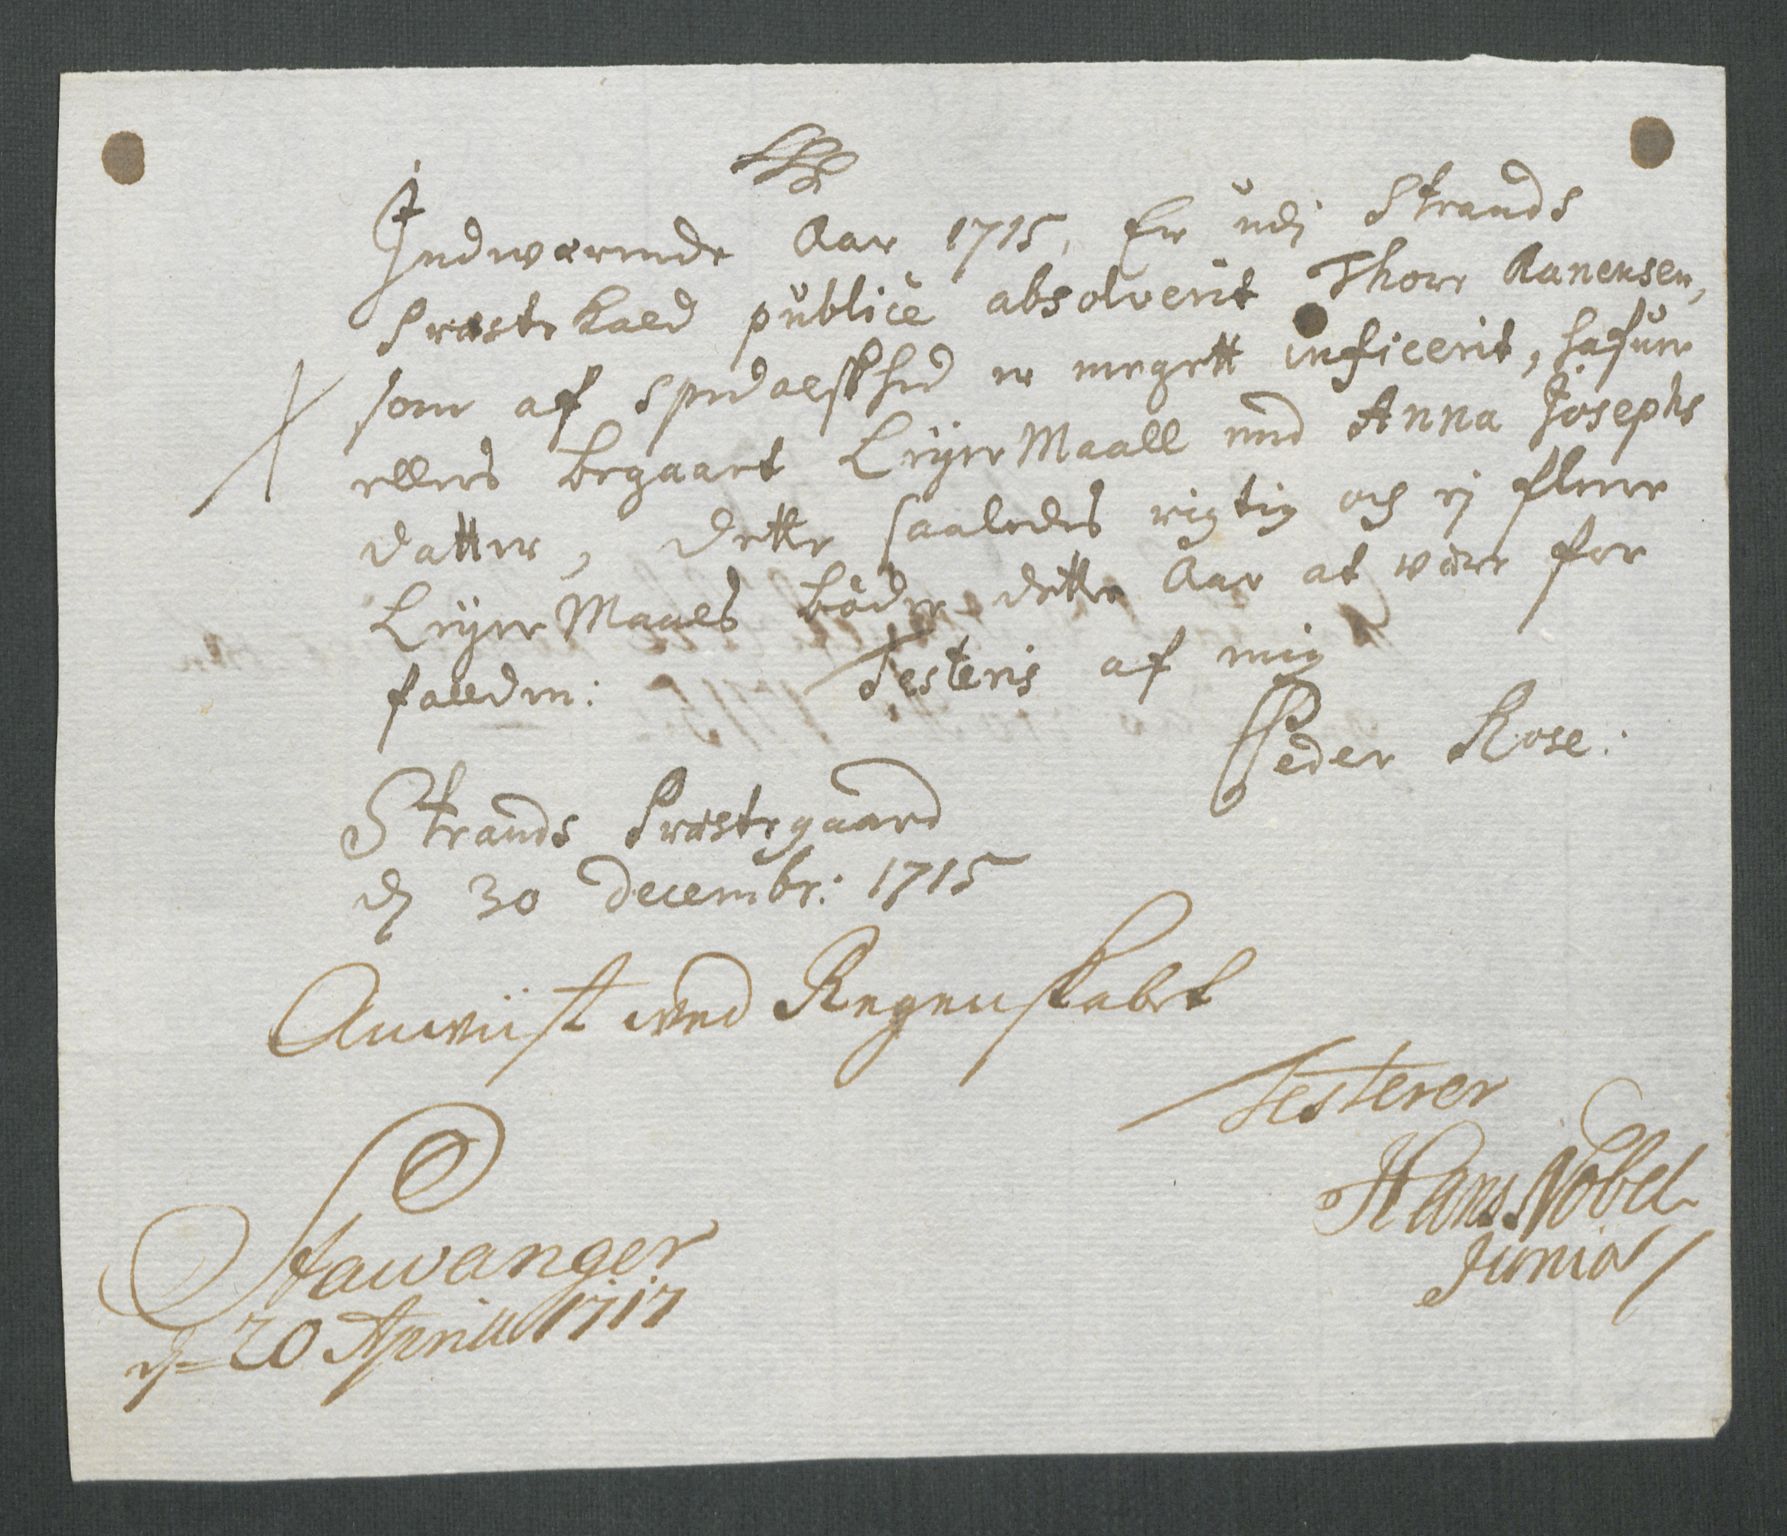 Indwærende Aar 1715, Er udj Strands
Præstekald publice absolverit Thore Aanensen,
som af Spedalskhed er megett inficerit, hafuer
ellers begaaet LeyerMaall med Anna Josephs
datter, dette saaledes rigtig och ej flere
LeyerMaals bøder dette Aar at være for
falden: Testeris af mig
Peder Rose:
Strands Præstegaard
dn 30 decembr: 1715
Anviist ved Regenskabet
Testerer
Hans Nobel
Junior
Stawanger
dn 20 Aprill 1717